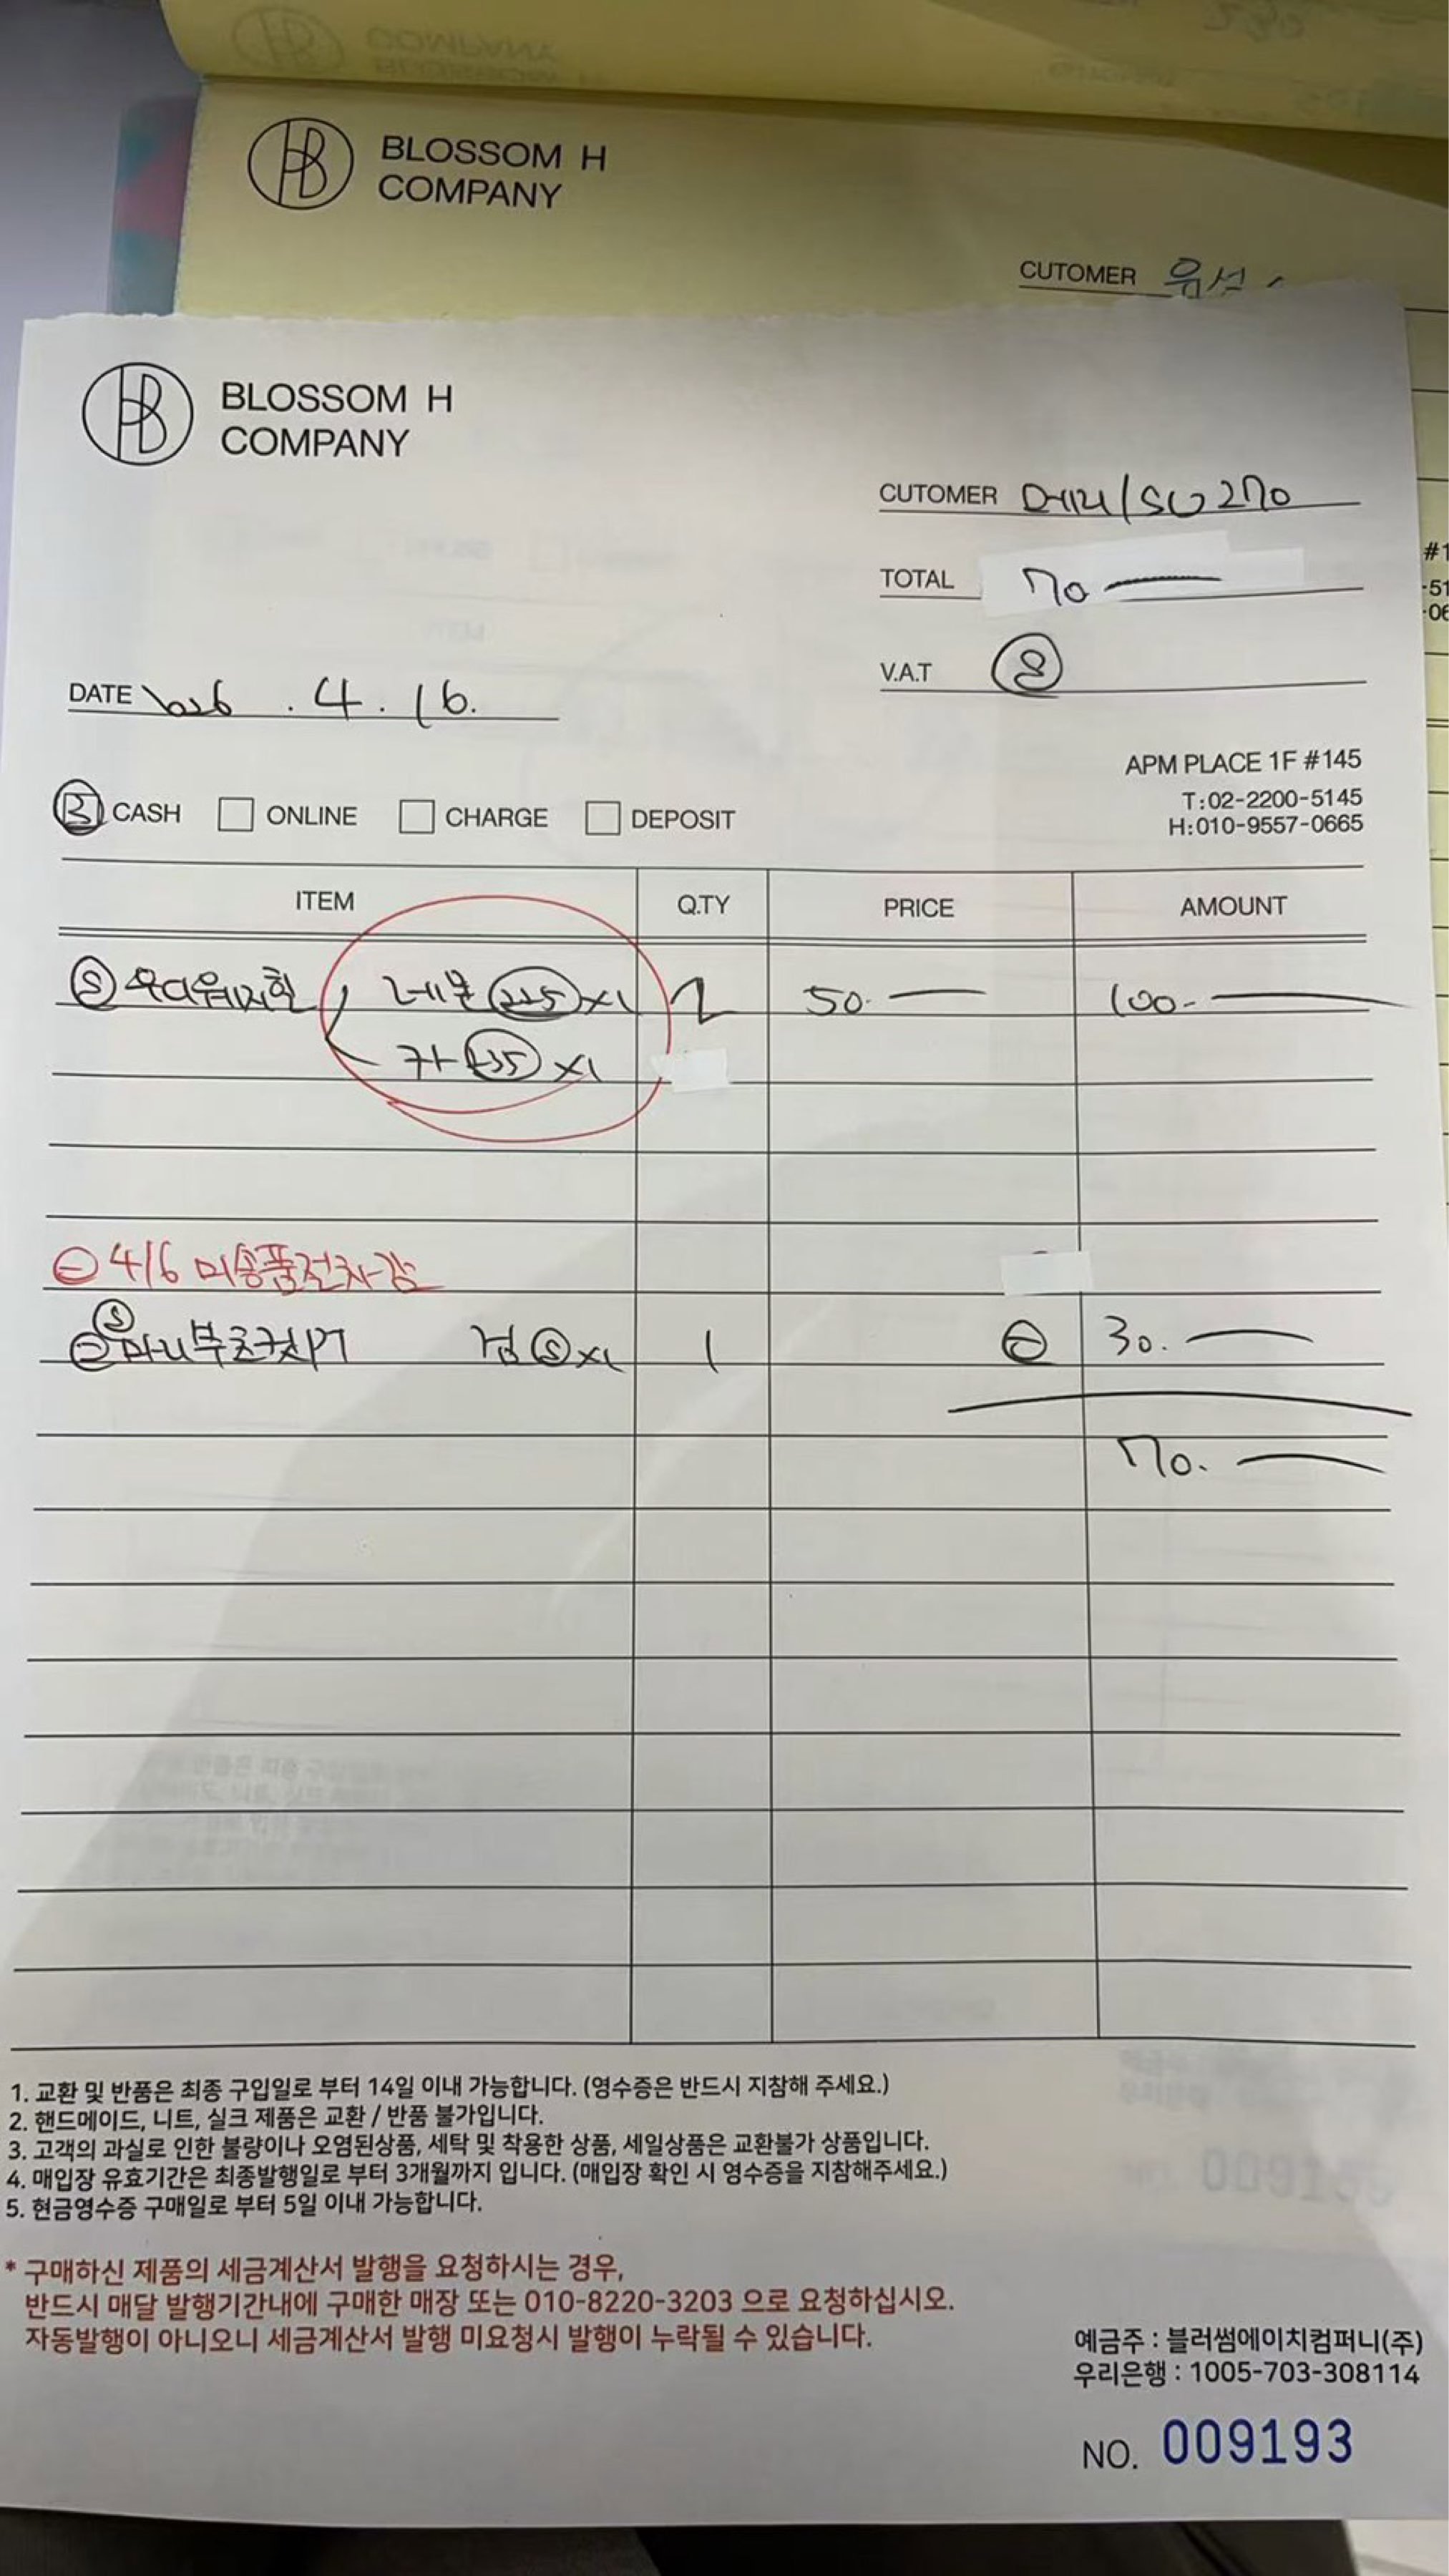 BLOSSOM H
COMPANY
CUTOMER
BLOSSOM H
COMPANY
CUTOMER 메리/SU270
TOTAL 70
V.A.T
DATE 2026.4.16.
CASH ONLINE CHARGE DEPOSIT
APM PLACE 1F #145
T:02-2200-5145
H:010-9557-0665
ITEM Q.TY PRICE AMOUNT
Ⓢ 레몬 225 x1 2 50. 100-
카 235 x1
⊖ 4/6 미송품전차감
⊖ Ⓢ 검 Ⓢ x1 1 ⊖ 30.
70.
1. 교환 및 반품은 최종 구입일로 부터 14일 이내 가능합니다. (영수증은 반드시 지참해 주세요.)
2. 핸드메이드, 니트, 실크 제품은 교환 / 반품 불가입니다.
3. 고객의 과실로 인한 불량이나 오염된상품, 세탁 및 착용한 상품, 세일상품은 교환불가 상품입니다.
4. 매입장 유효기간은 최종발행일로 부터 3개월까지 입니다. (매입장 확인 시 영수증을 지참해주세요.)
5. 현금영수증 구매일로 부터 5일 이내 가능합니다.
* 구매하신 제품의 세금계산서 발행을 요청하시는 경우,
반드시 매달 발행기간내에 구매한 매장 또는 010-8220-3203 으로 요청하십시오.
자동발행이 아니오니 세금계산서 발행 미요청시 발행이 누락될 수 있습니다.
예금주 : 블러썸에이치컴퍼니(주)
우리은행 : 1005-703-308114
NO. 009193